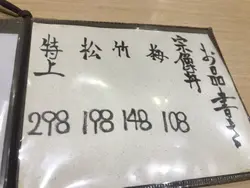 お品書き
梅 108
竹 148
松 198
特上 298